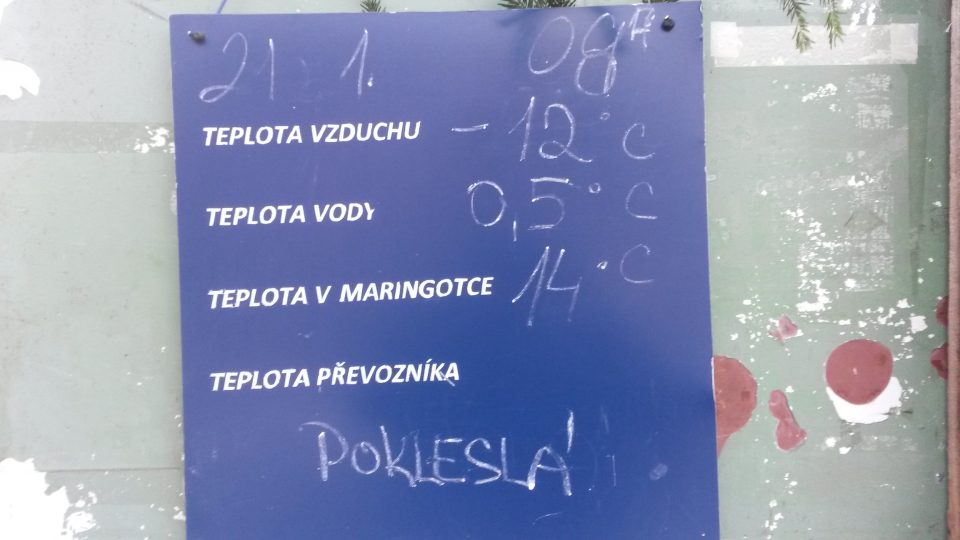 21. 1. 08 H
TEPLOTA VZDUCHU - 12°C
TEPLOTA VODY 0,5°C
TEPLOTA V MARINGOTCE 14°C
TEPLOTA PŘEVOZNÍKA
POKLESLÁ